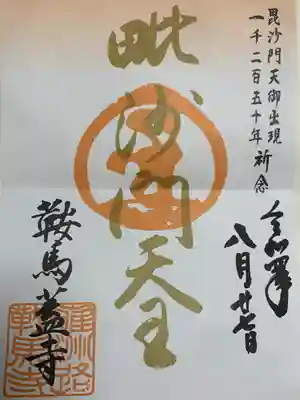 毘沙門天御出現
一千二百五十年祈念
令和
八月廿七日
毗沙門天王
鞍馬蓋寺